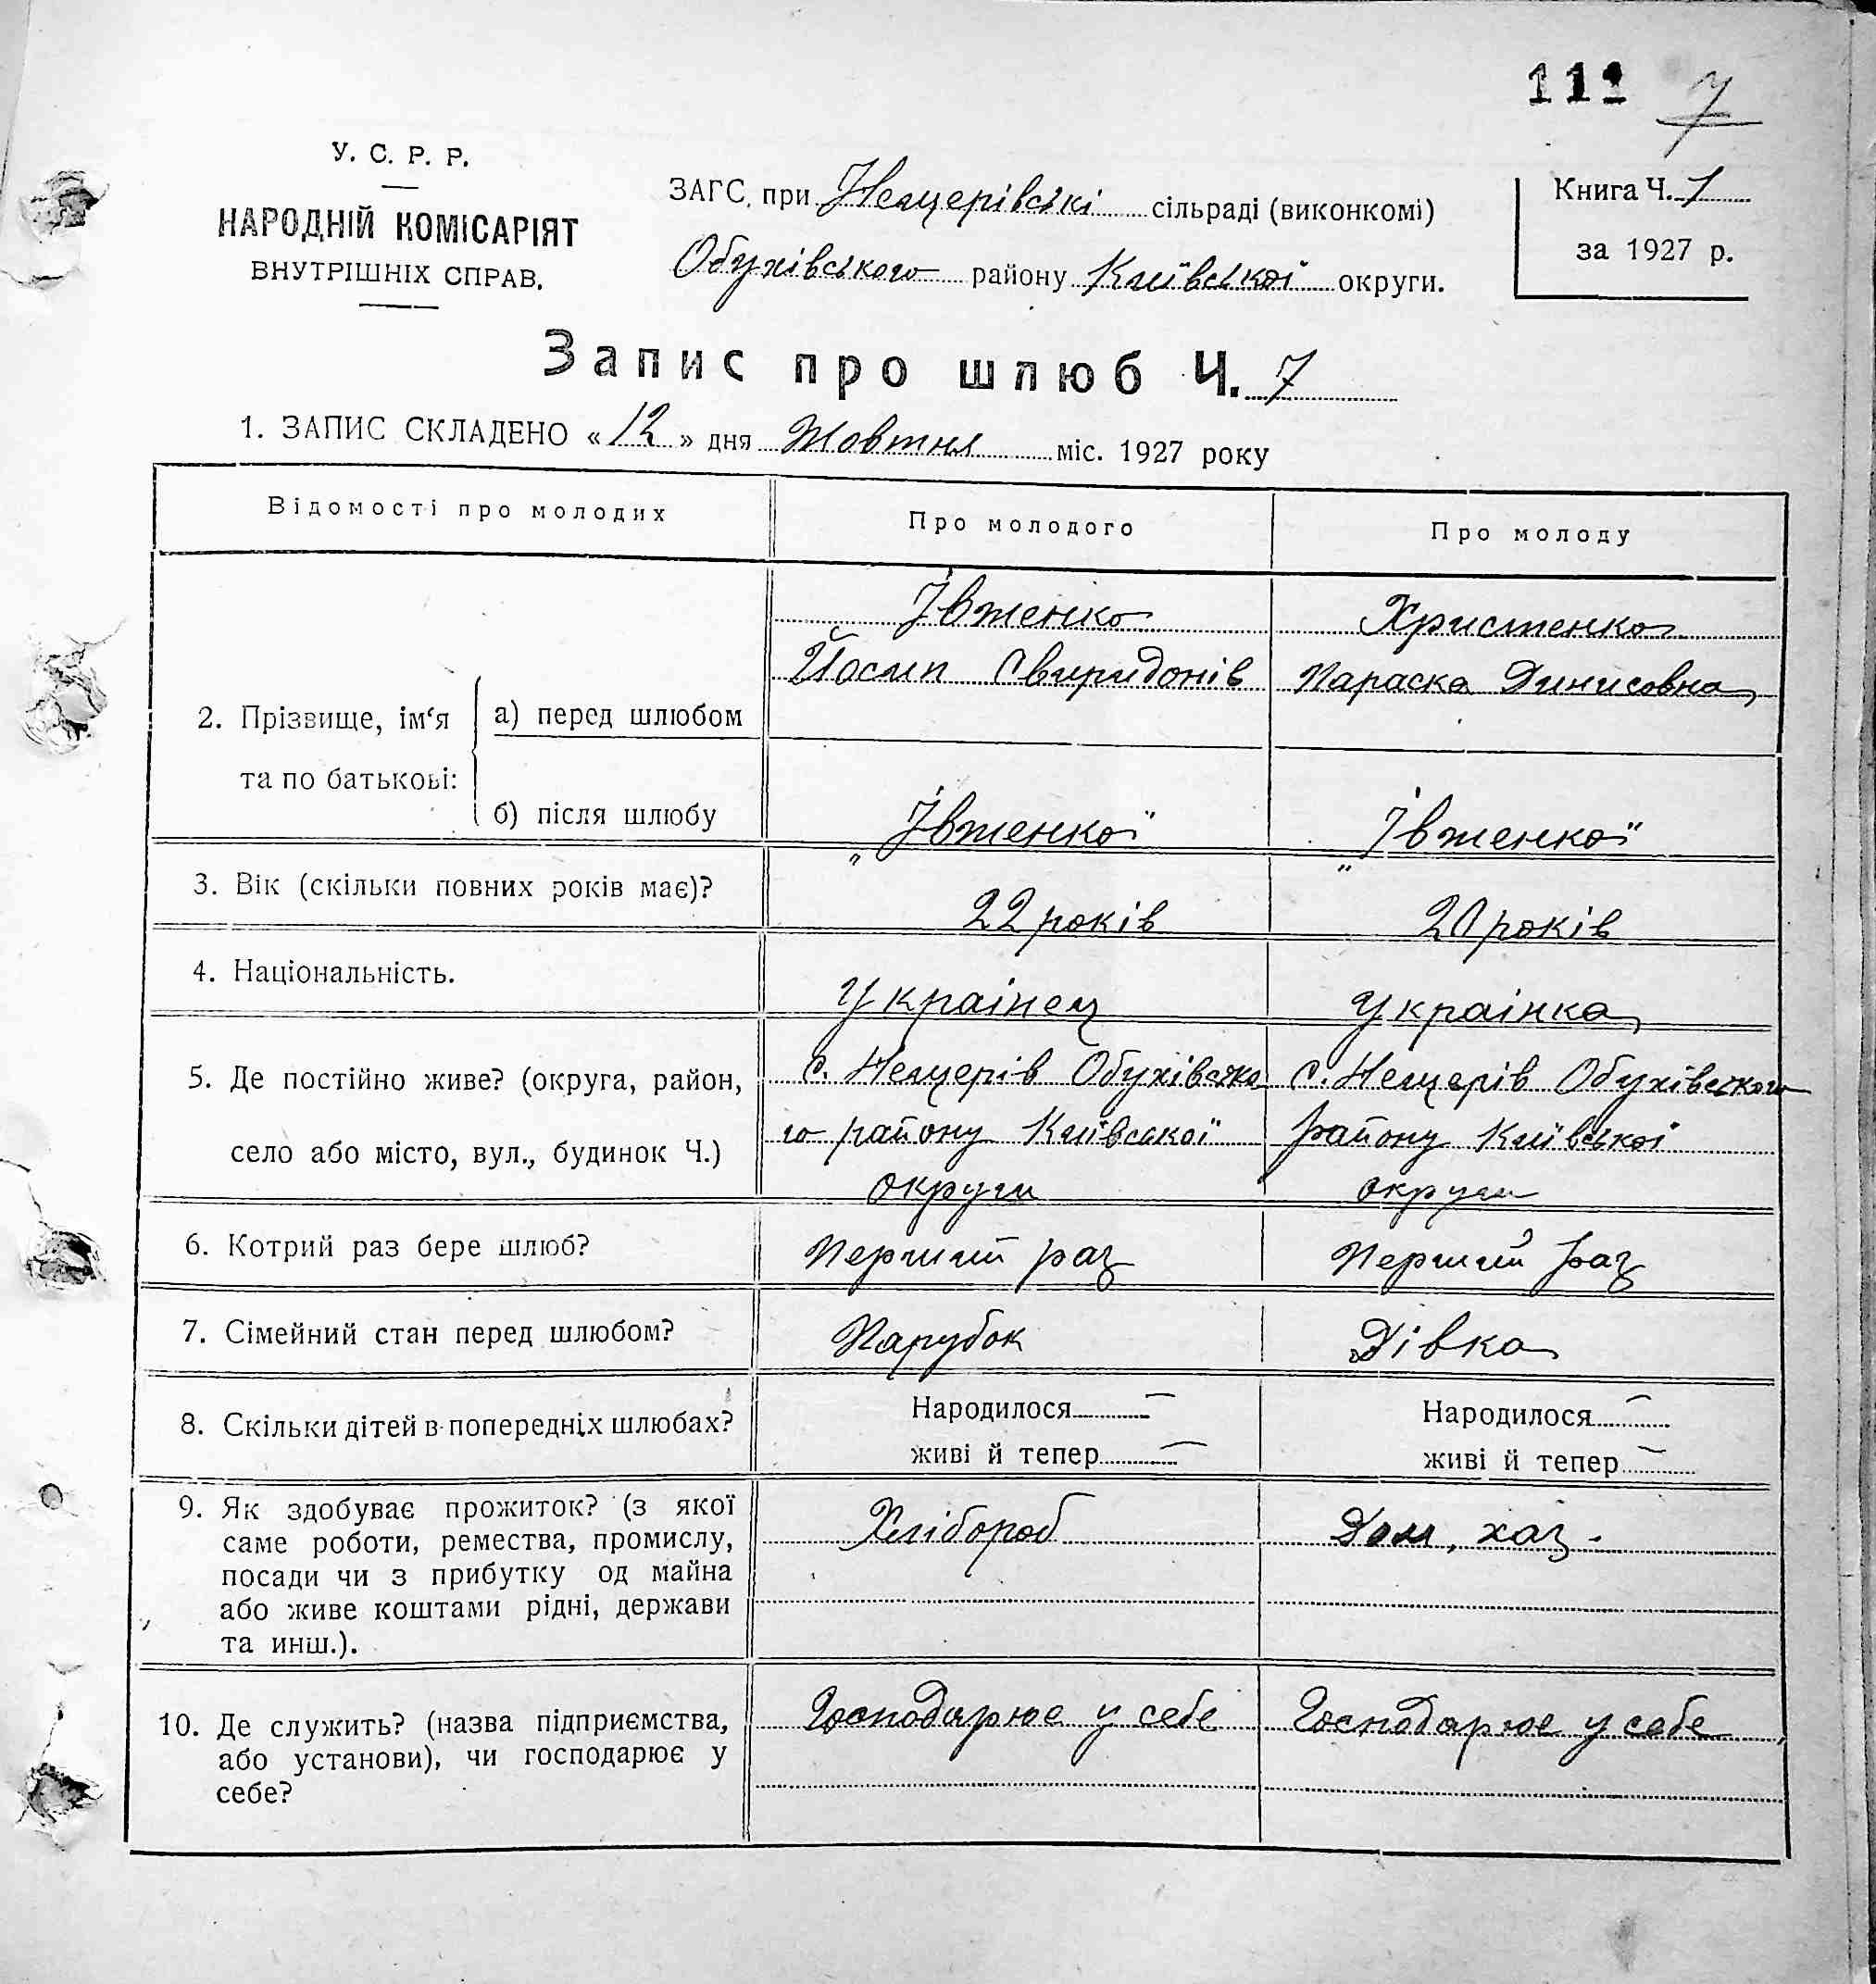 111 7
У. С. Р. Р.
НАРОДНІЙ КОМІСАРІЯТ
ВНУТРІШНІХ СПРАВ.
ЗАГС, при Нещерівські сільраді (виконкомі)
Обухівського району Київської округи.
Книга Ч. 1
за 1927 р.
Запис про шлюб Ч. 7
1. ЗАПИС СКЛАДЕНО «12» дня Жовтня міс. 1927 року
Відомості про молодих
Про молодого
Про молоду
2. Прізвище, ім‘я та по батькові:
а) перед шлюбом
Івженко
Йосип Свиридонів
Христенко
Параска Динисовна
б) після шлюбу
„Івженко"
„Івженко"
3. Вік (скільки повних років має)?
22 років
20 років
4. Національність.
Украінец
Украінка
5. Де постійно живе? (округа, район,
село або місто, вул., будинок Ч.)
с. Нещерів Обухівсько
го району Київської
округи
с. Нещерів Обухівського
району Київської
округи
6. Котрий раз бере шлюб?
Перший раз
Перший раз
7. Сімейний стан перед шлюбом?
Парубок
Дівка
8. Скільки дітей в попередніх шлюбах?
Народилося —
живі й тепер —
Народилося —
живі й тепер —
9. Як здобуває прожиток? (з якої
саме роботи, ремества, промислу,
посади чи з прибутку од майна
або живе коштами рідні, держави
та инш.).
Хлібороб
Дом. хаз.
10. Де служить? (назва підприємства,
або установи), чи господарює у
себе?
Господарює у себе
Господарює у себе